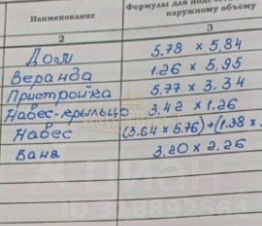 Наименование
Формулы для подсч
наружному объёму
2 3
Дом 5.78 × 5.84
Веранда 1.26 × 5.95
Пристройка 5.77 × 3.34
Навес-крыльцо 3.42 × 1.26
Навес (3.64 × 6.76)+(1.38 ×
Баня 3.20 × 2.26